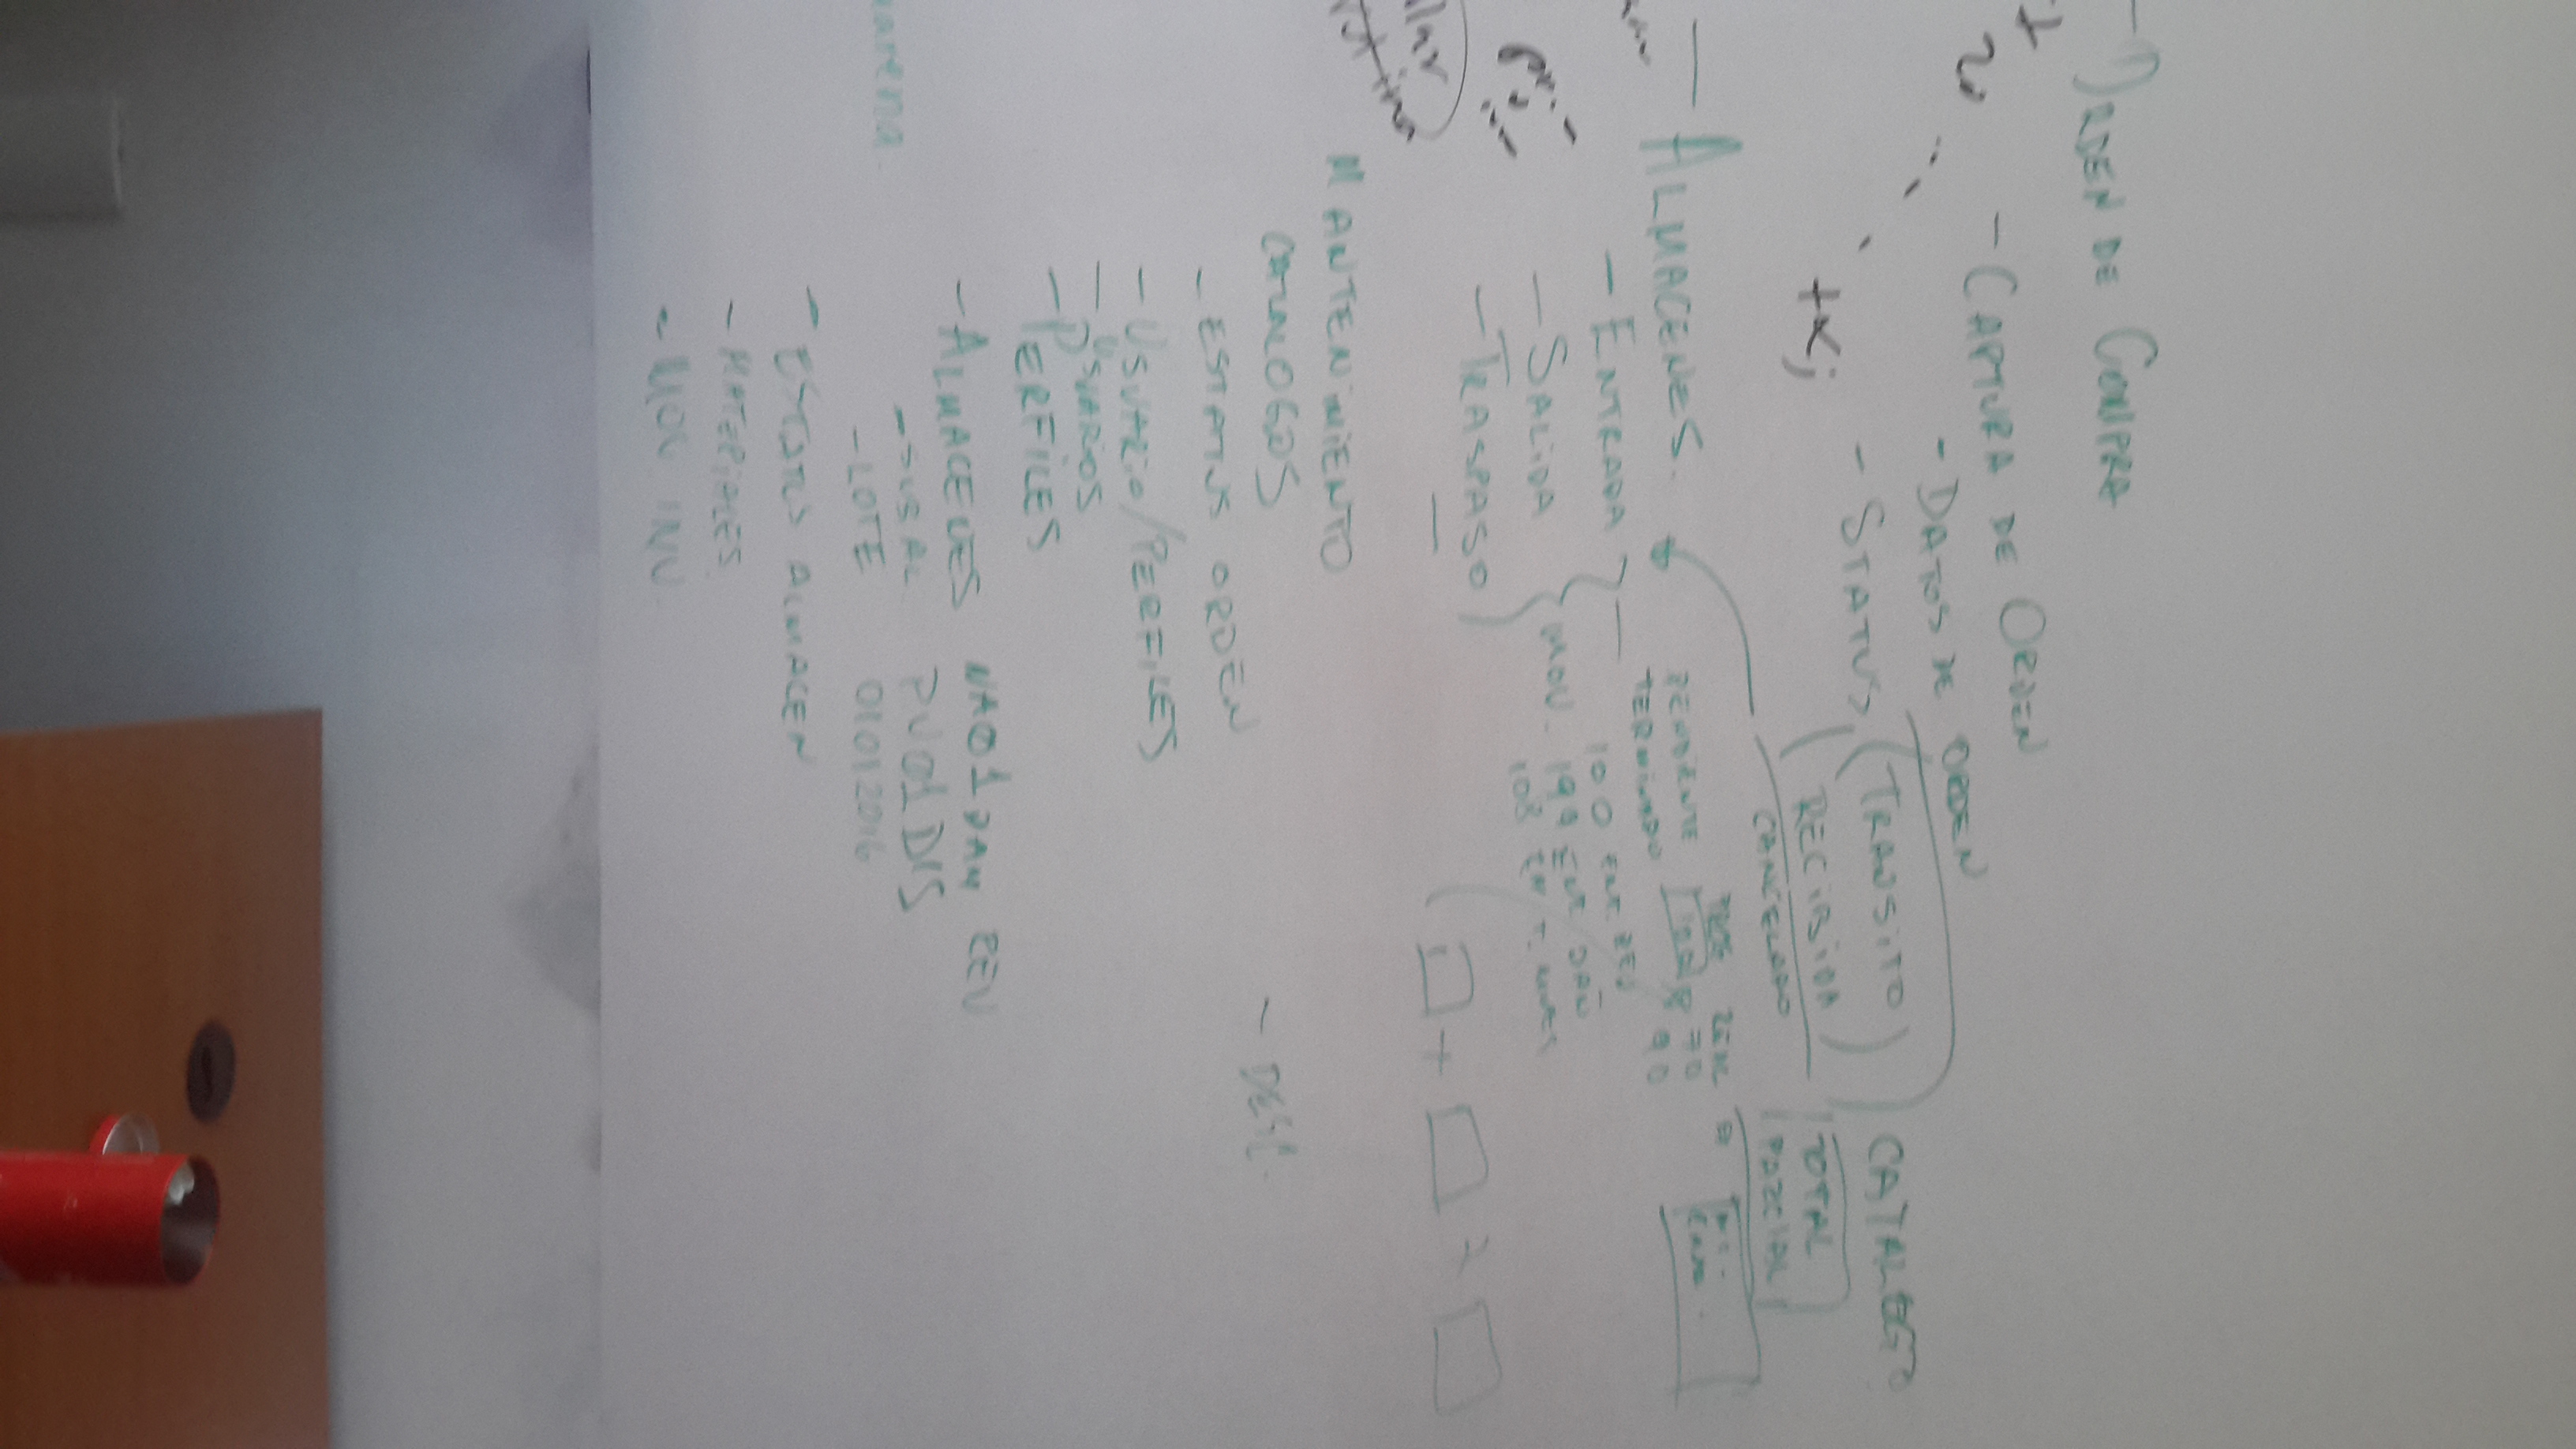 - ORDEN DE COMPRA
- CAPTURA DE ORDEN
- DATOS DE ORDEN
- STATUS (TRANSITO)
RECIBIDA
CANCELADO
CATALOGO
TOTAL
PARCIAL
- ALMACENES
PENDIENTE
TERMINADO
REAL
70
90
- ENTRADA
- SALIDA
- TRASPASO
MOV. 100 ENT. REV
199 ENT. DAÑ
108
+
MANTENIMIENTO
CATALOGOS
- DESC.
- ESTATUS ORDEN
- USUARIO/PERFILES
- USUARIOS
- PERFILES
- ALMACENES NA01 DAM REV
- SUBAL PV01 DIS
- LOTE 01012016
- ESTATUS ALMACEN
- MATERIALES
- MOV INV.